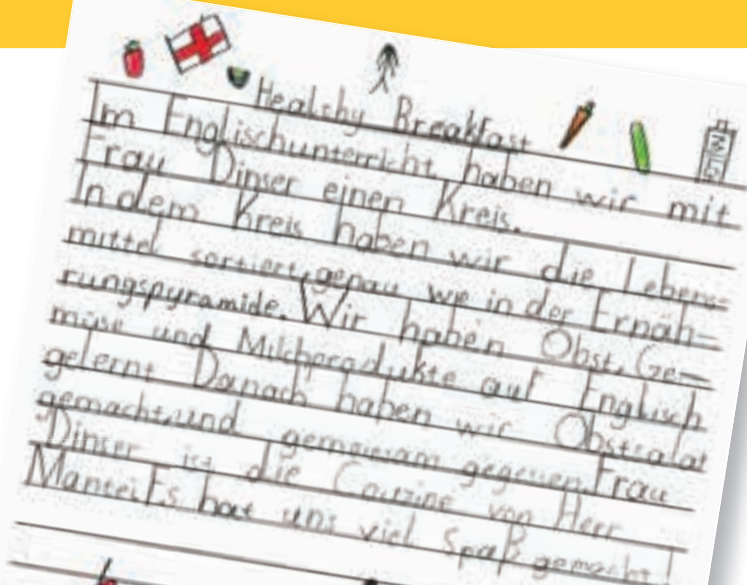 Healthy Breakfast
Im Englischunterricht haben wir mit
Frau Dinser einen Kreis.
In dem Kreis haben wir die Lebens=
mittel sortiert, genau wie in der Ernäh-
rungspyramide. Wir haben Obst, Ge-
müse und Milchprodukte auf Englisch
gelernt Danach haben wir Obstsalat
gemacht und gemeinsam gegessen. Frau
Dinser ist die Couzine von Herr
Mantei Es hat uns viel Spaß gemacht!